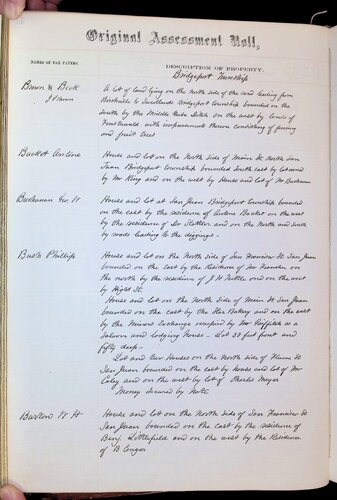 Original Assessment Roll,
NAMES OF TAX PAYERS.
DESCRIPTION OF PROPERTY.
Bridgeport Township
Brown & Beck
A lot of land lying on the north side of the road leading from
to Sweetlands Bridgeport township bounded on the
South by the Middle Yuba Ditch on the west by lands of
with improvements thereon consisting of fencing
and fruit trees
Buckot Antine
House and lot on the North Side of Main St north San
Juan Bridgeport township bounded South east by lot owned
by Mr King and on the west by House and lot of Mr Buchanan
Buchanan Geo W
House and lot at San Juan Bridgeport township bounded
on the east by the residence of Antine Bucket on the west
by the residence of Dr Slattler and on the North and South
by roads leading to the diggings.
Bush Phillip
House and lot on the North Side of San Francisco St San Juan
bounded on the east by the Residence of Mr Franden on
the north by the residence of J H Nettle and on the west
by Hight St.
House and lot on the North Side of Main St San Juan
bounded on the east by the Star Bakery and on the west
by the Miners Exchange occupied by Mr Griffith as a
Saloon and lodging House - Lot 38 feet front and
fifty deep -
Lot and two Houses on the North side of Flume St
San Juan bounded on the east by house and lot of Mr
Caley and on the west by lot of Charles Meyer
Money secured by Note
Burton W H
House and lot on the North Side of San Francisco St
San Juan bounded on the east by the residence of
Benj. Littlefield and on the west by the Residence
of B Conger